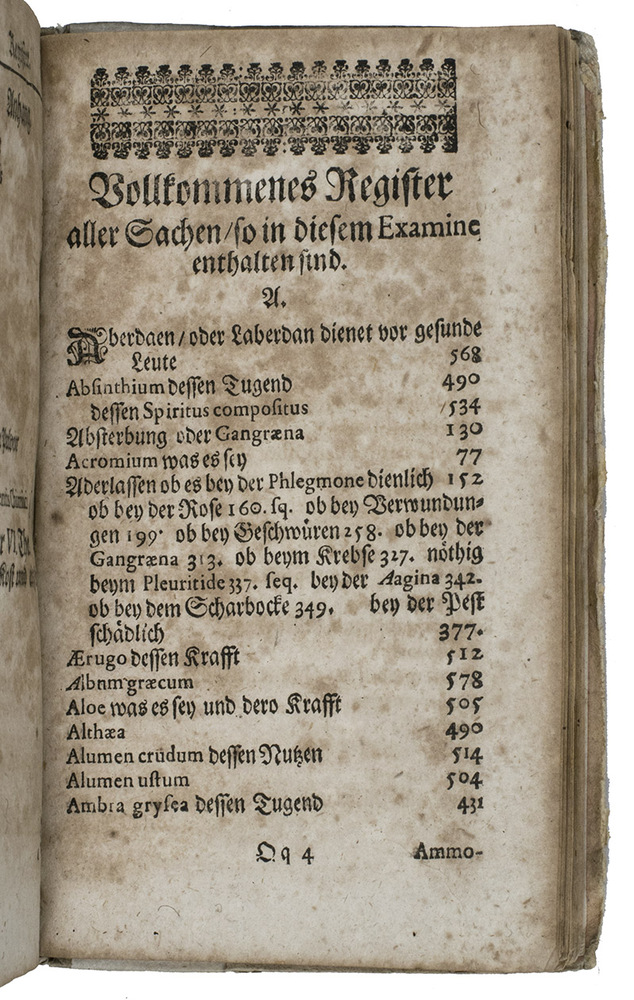 Vollkommenes Register
aller Sachen/so in diesem Examine
enthalten sind.
A.
Aberdaen/oder Laberdan dienet vor gesunde
Leute 568
Absinthium dessen Tugend 490
dessen Spiritus compositus 534
Absterbung oder Gangræna 130
Acromium was es sey 77
Aderlassen ob es bey der Phlegmone dienlich 152
ob bey der Rose 160. sq. ob bey Verwundun-
gen 199. ob bey Geschwüren 258. ob bey der
Gangræna 313. ob beym Krebse 327. nöthig
beym Pleuritide 337. seq. bey der Aagina 342.
ob bey dem Scharbocke 349. bey der Pest
schädlich 377.
Ærugo dessen Krafft 512
Albnm græcum 578
Aloe was es sey und dero Krafft 505
Althæa 490
Alumen crudum dessen Nutzen 514
Alumen ustum 504
Ambra grysea dessen Tugend 431
Qq 4 Ammo-